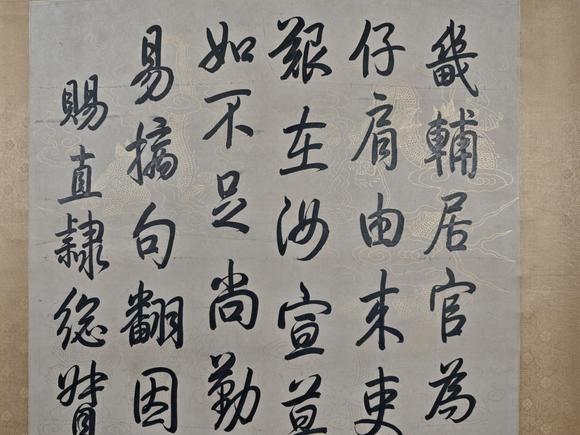 畿輔居官為
仔肩由来吏
艱在汝宣
如不足尚勤
易摛句翻因
賜直隸總督